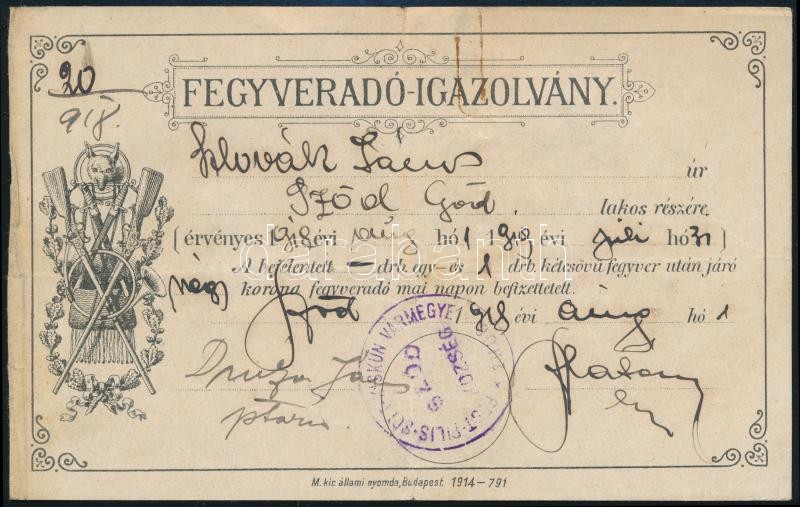 20
918.
FEGYVERADÓ-IGAZOLVÁNY.
Szlovák János úr
Sződ Göd lakos részére,
(érvényes 1918 évi aug hó 1 1919 évi juli hó 31)
A bejelentett – drb. egy- és 1 drb. kétcsövű fegyver után járó
négy korona fegyveradó mai napon befizettetett.
Sződ 1918 évi aug hó 1
PEST-PILIS-SOLT-KISKUN VÁRMEGYE
SZŐD
KÖZSÉG
darabanth
M. kir. állami nyomda, Budapest. 1914–791